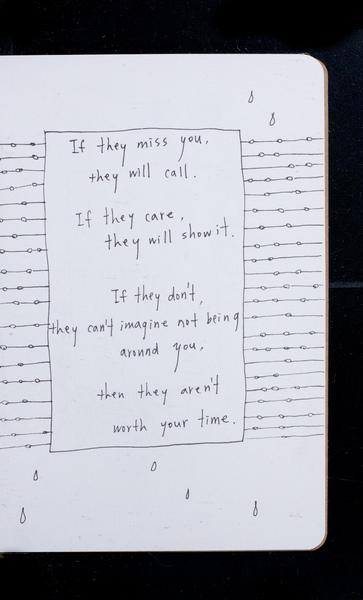 If they miss you,
they will call.
If they care,
they will show it.
If they don't,
they can't imagine not being
around you,
then they aren't
worth your time.